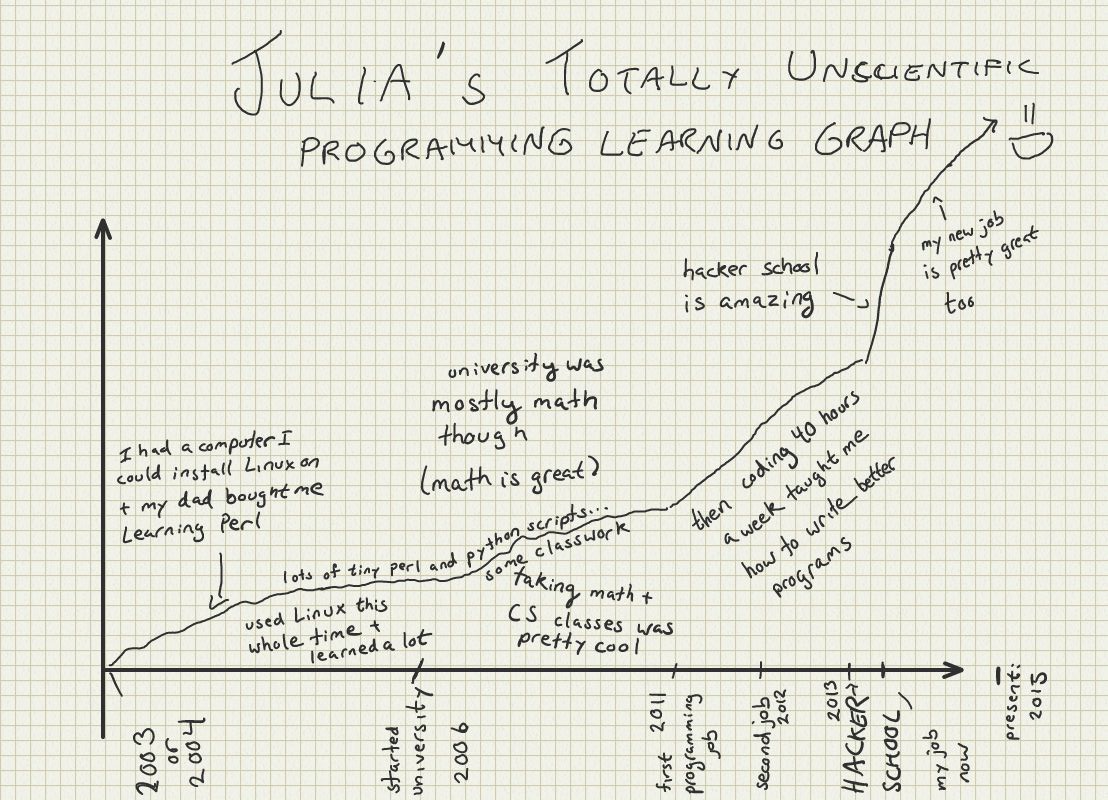 JULIA'S TOTALLY UNSCIENTIFIC
PROGRAMMING LEARNING GRAPH
my new job
is pretty great
too
hacker school
is amazing
university was
mostly math
though
(math is great)
I had a computer I
could install Linux on
+ my dad bought me
Learning Perl
then coding 40 hours
a week taught me
how to write better
programs
lots of tiny perl and python scripts...
some classwork
used Linux this
whole time +
learned a lot
taking math +
CS classes was
pretty cool
2003
or
2004
started
university
2006
first 2011
programming
job
second job
2012
2013
HACKER
SCHOOL
my job
now
present:
2015